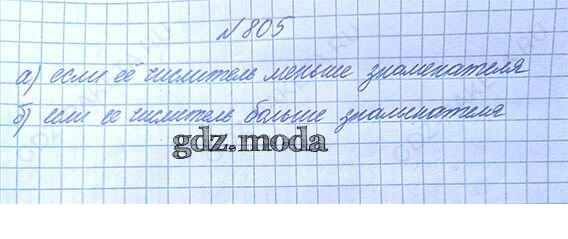 №805
а) если её числитель меньше знаменателя
б) если ее числитель больше знаменателя
gdz.moda